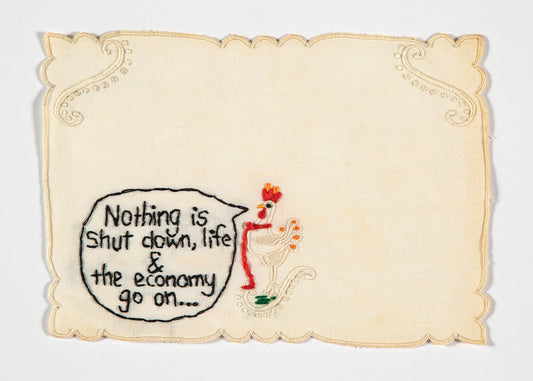 Nothing is
shut down, life
&
the economy
go on...